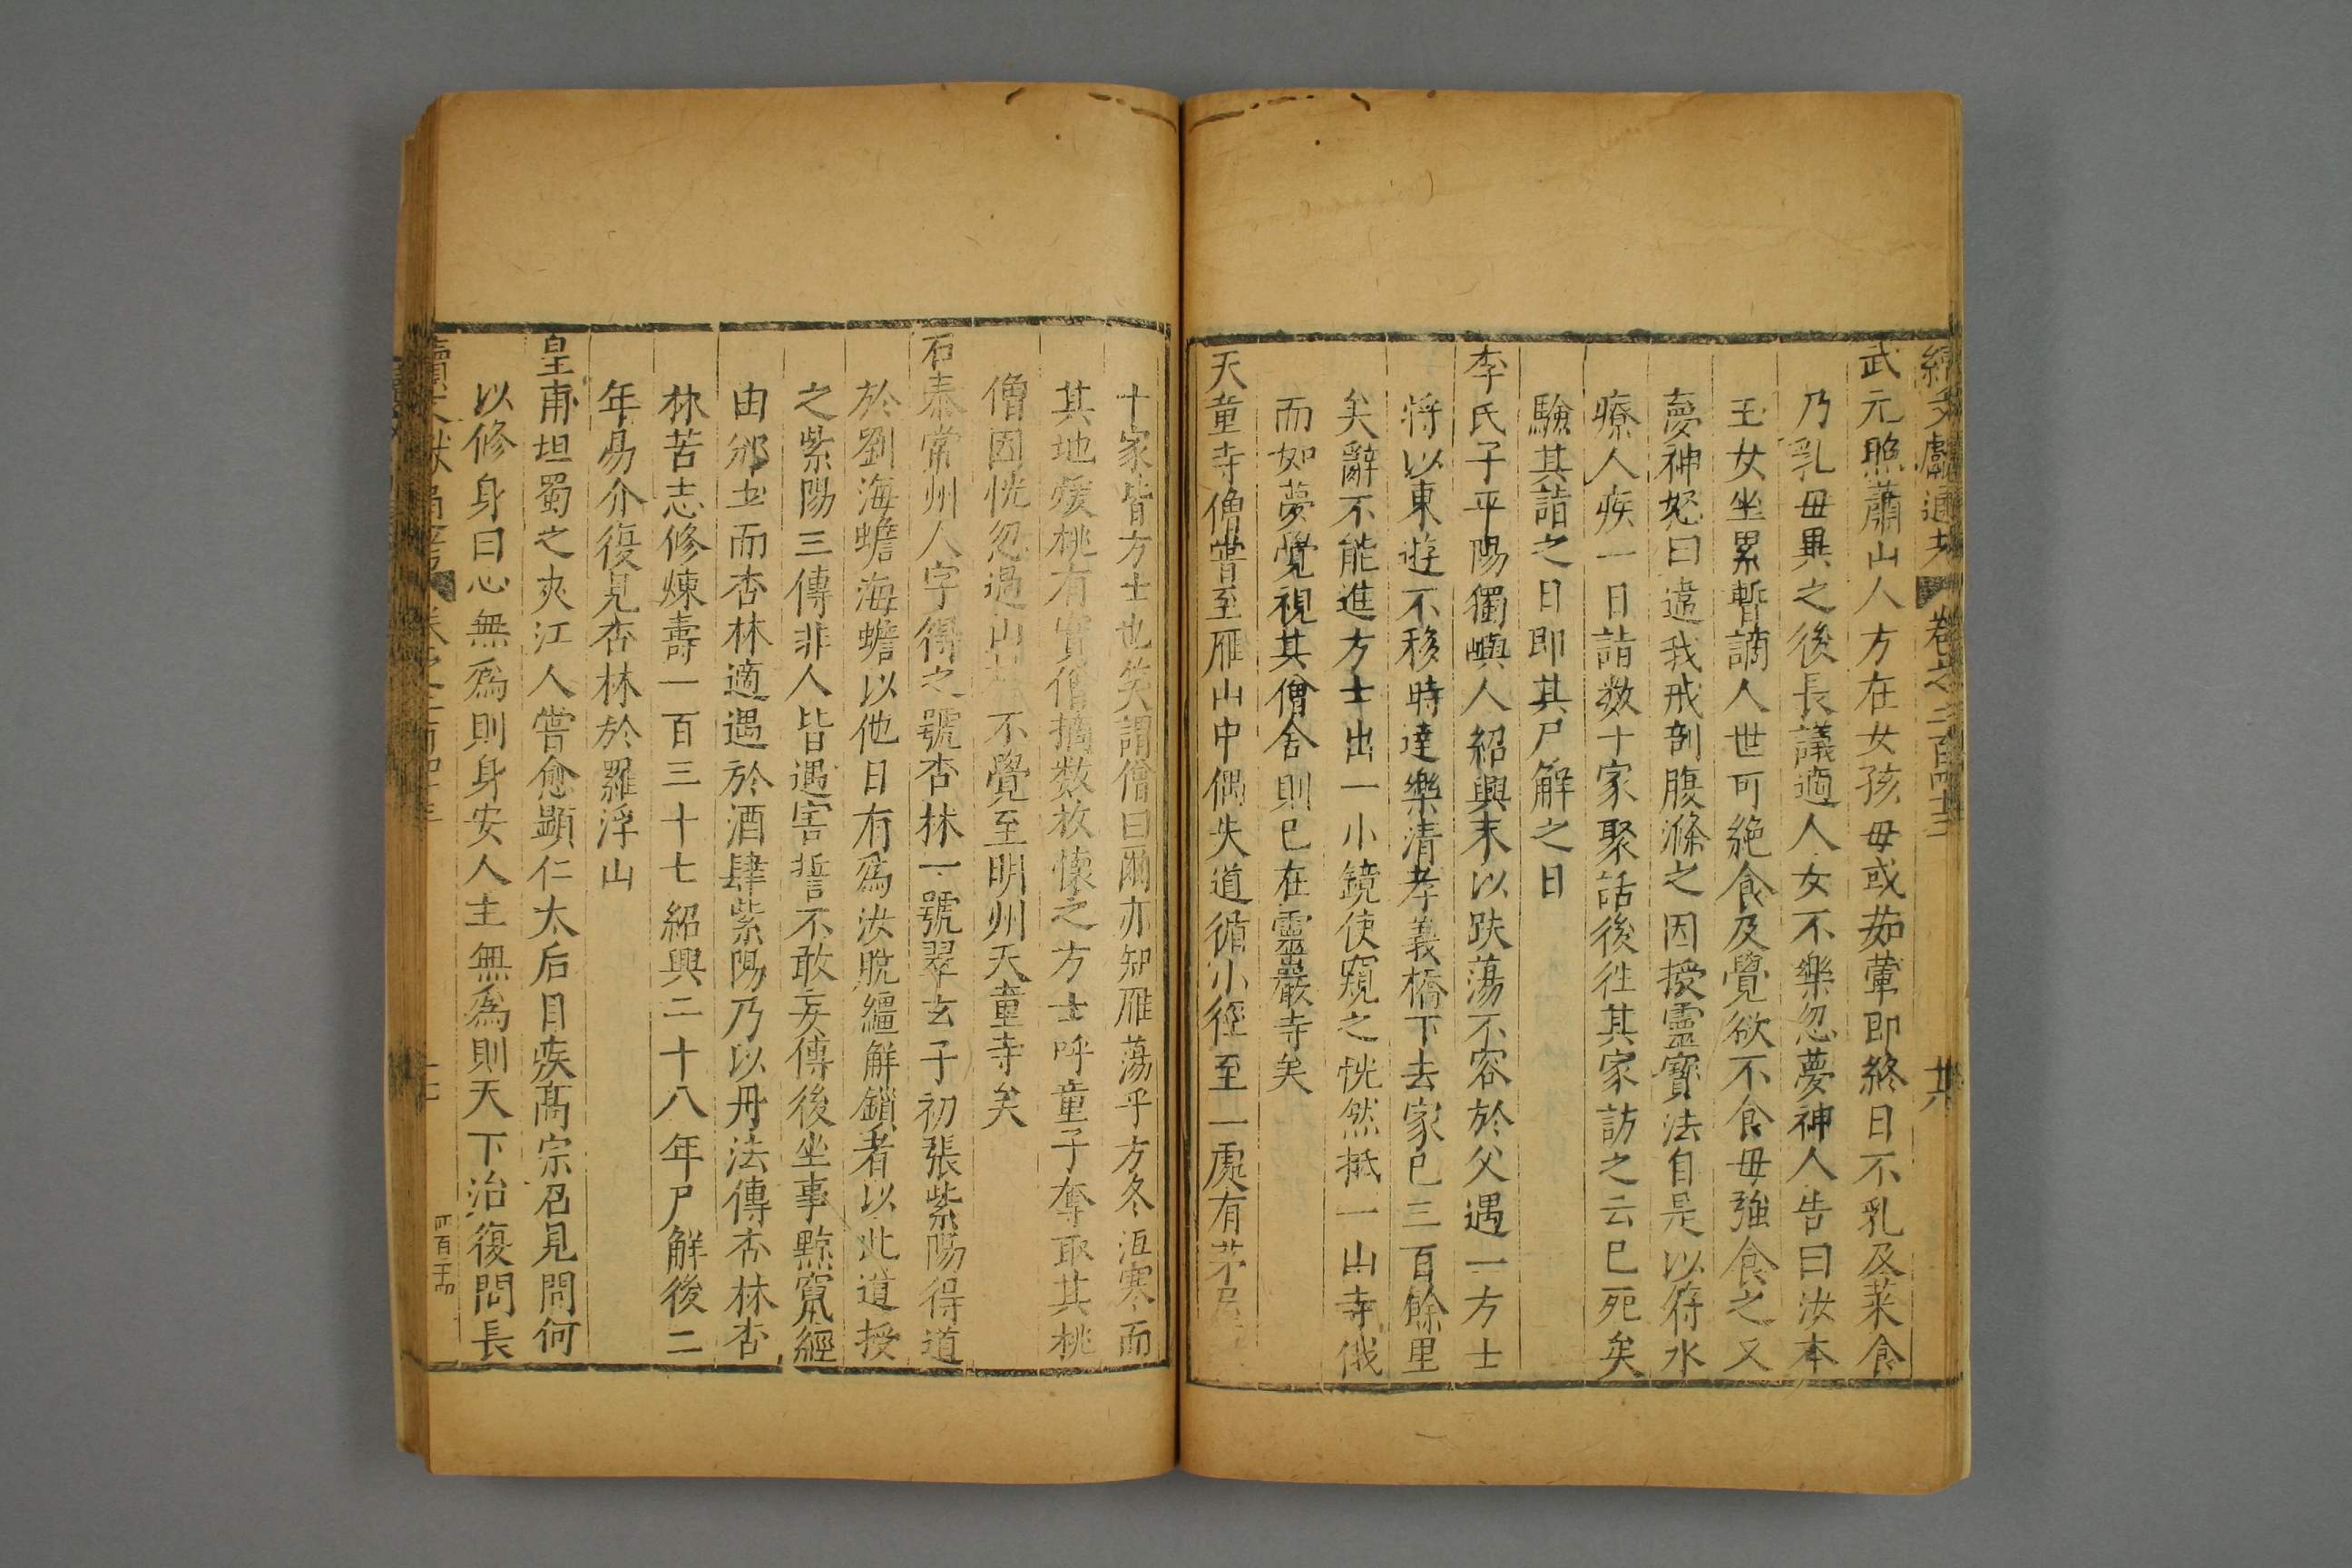 續文獻通考 卷之二百四十三 廿六
武元照蕭山人方在女孩母或茹葷即終日不乳及菜食
乃乳母異之後長議適人女不樂忽夢神人告曰汝本
玉女坐累暫謫人世可絶食及覺欲不食母強食之又
夢神怒曰違我戒剖腹滌之因授靈寶法自是以符水
療人疾一日詣数十家聚話後徃其家訪之云已死矣
驗其詣之日即其尸解之日
李氏子平陽獨嶼人紹興末以趺蕩不容於父遇一方士
将以東遊不移時達樂清孝義橋下去家已三百餘里
矣辭不能進方士出一小鏡使窺之恍然抵一山寺俄
而如夢覺視其僧舍則已在靈巖寺矣
天童寺僧嘗至雁山中偶失道循小徑至一處有茅屋
十家皆方士也笑謂僧曰爾亦知雁蕩乎方冬沍寒而
其地煖桃有實僧摘数枚懷之方士呼童子奪取其桃
僧因恍忽過山 不覺至明州天童寺矣
石泰常州人字得之號杏林一號翠玄子初張紫陽得道
於劉海蟾海蟾以他日有為汝脫韁解鎖者以此道授
之紫陽三傳非人皆遇害誓不敢妄傳後坐事黥竄經
由邠土而杏林適遇於酒肆紫陽乃以丹法傳杏林杏
林苦志修煉壽一百三十七紹興二十八年尸解後二
年易介復見杏林於羅浮山
皇甫坦蜀之夾江人嘗愈顯仁太后目疾髙宗召見問何
以修身曰心無為則身安人主無為則天下治復問長